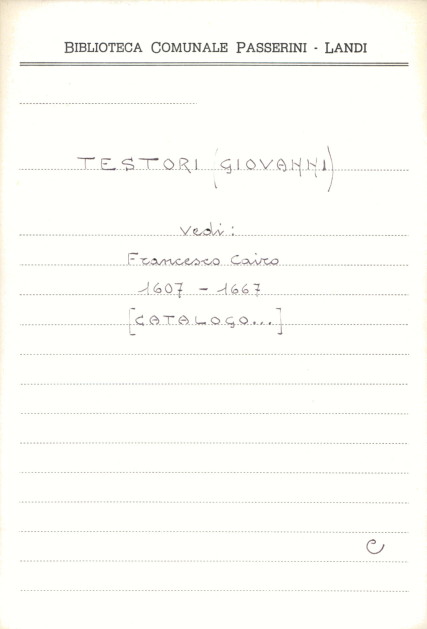 BIBLIOTECA COMUNALE PASSERINI - LANDI
TESTORI (GIOVANNI)
Vedi:
Francesco Cairo
1607 - 1667
[CATALOGO...]
C